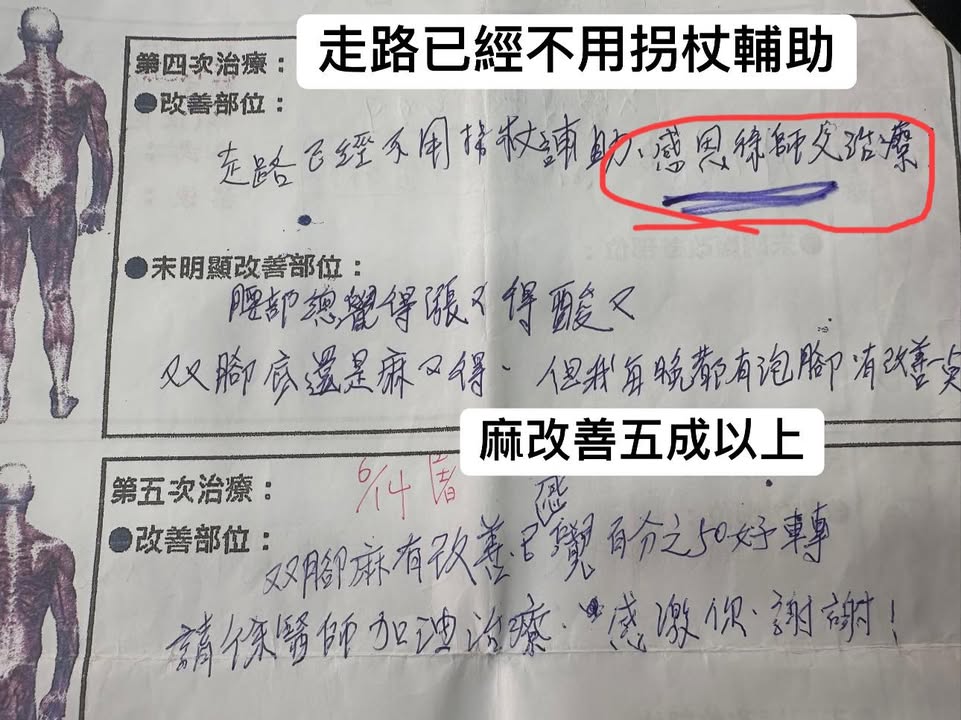 走路已經不用拐杖輔助
第四次治療：
●改善部位：
走路已經不用拐杖輔助、感恩徐師父治療
●未明顯改善部位：
腰部總覺得漲又得酸又
双腳底還是麻又得、但我每晚都有泡腳有改善一点
麻改善五成以上
第五次治療：
6/14
●改善部位：
双腳麻有改善、已感覺百分之50好轉
請徐醫師加油治療、感激你謝謝！